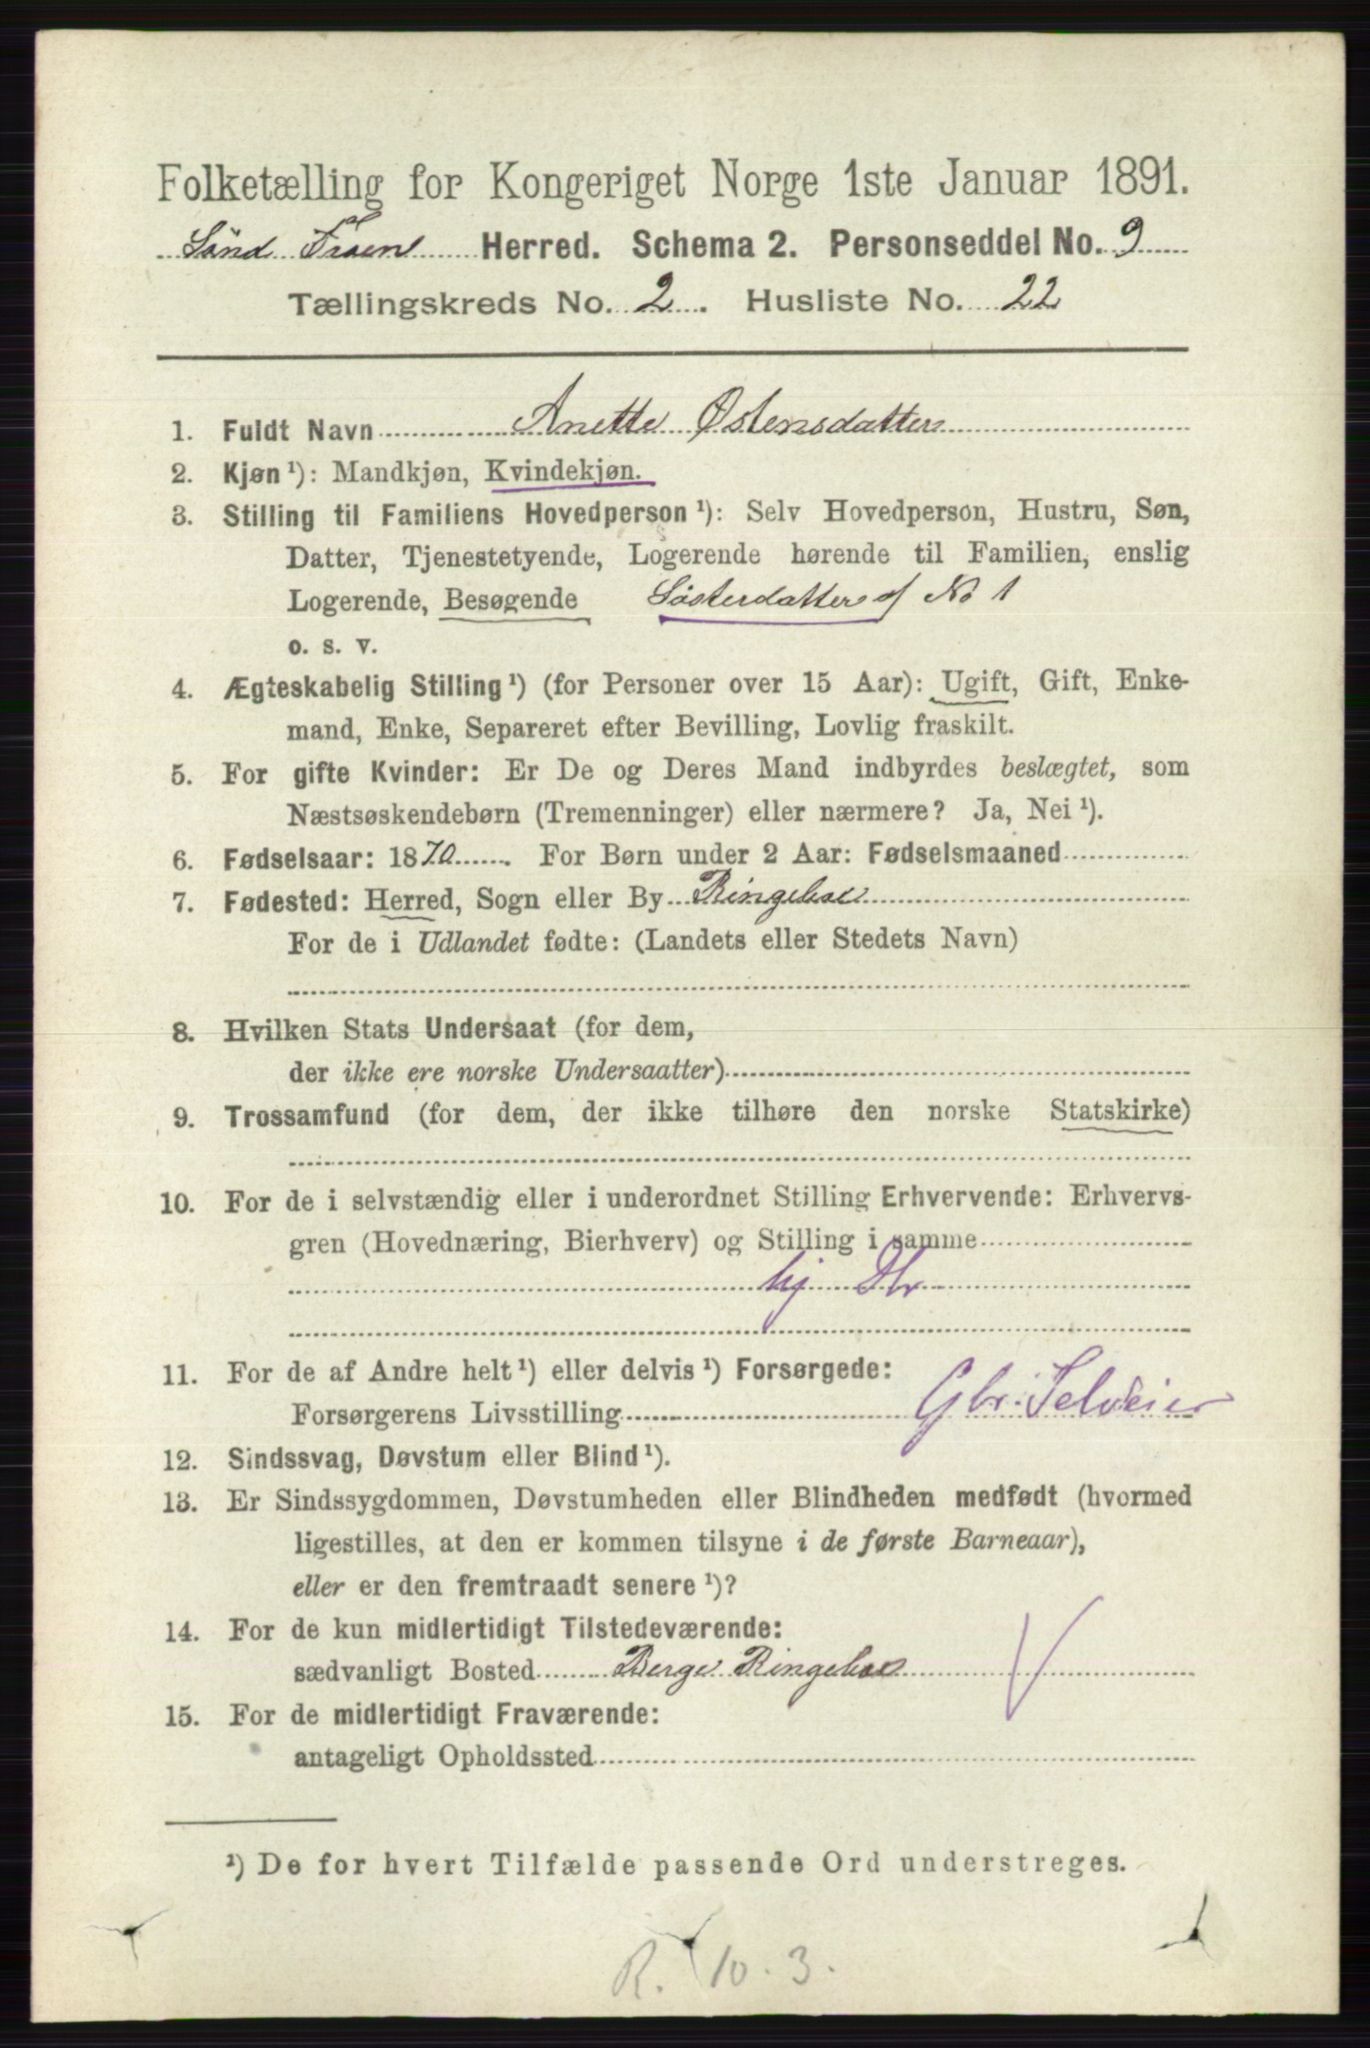 Folketælling for Kongeriget Norge 1ste Januar 1891.
Sønd Fron Herred. Schema 2. Personseddel No. 9
Tællingskreds No. 2. Husliste No. 22
1. Fuldt Navn Anette Østensdatter
2. Kjøn ¹): Mandkjøn, Kvindekjøn.
3. Stilling til Familiens Hovedperson ¹): Selv Hovedperson, Hustru, Søn,
Datter, Tjenestetyende, Logerende hørende til Familien, enslig
Logerende, Besøgende Søsterdatter af No 1
o. s. v.
4. Ægteskabelig Stilling ¹) (for Personer over 15 Aar): Ugift, Gift, Enke-
mand, Enke, Separeret efter Bevilling, Lovlig fraskilt.
5. For gifte Kvinder: Er De og Deres Mand indbyrdes beslægtet, som
Næstsøskendebørn (Tremenninger) eller nærmere? Ja, Nei ¹).
6. Fødselsaar: 1870. For Børn under 2 Aar: Fødselsmaaned
7. Fødested: Herred, Sogn eller By Ringeboe
For de i Udlandet fødte: (Landets eller Stedets Navn)
8. Hvilken Stats Undersaat (for dem,
der ikke ere norske Undersaatter)
9. Trossamfund (for dem, der ikke tilhøre den norske Statskirke)
10. For de i selvstændig eller i underordnet Stilling Erhvervende: Erhvervs-
gren (Hovednæring, Bierhverv) og Stilling i samme
11. For de af Andre helt ¹) eller delvis ¹) Forsørgede:
Forsørgerens Livsstilling Gbr. Selveier
12. Sindssvag, Døvstum eller Blind ¹).
13. Er Sindssygdommen, Døvstumheden eller Blindheden medfødt (hvormed
ligestilles, at den er kommen tilsyne i de første Barneaar),
eller er den fremtraadt senere ¹)?
14. For de kun midlertidigt Tilstedeværende:
sædvanligt Bosted Berge Ringeboe
15. For de midlertidigt Fraværende:
antageligt Opholdssted
¹) De for hvert Tilfælde passende Ord understreges.
R. 10. 3.